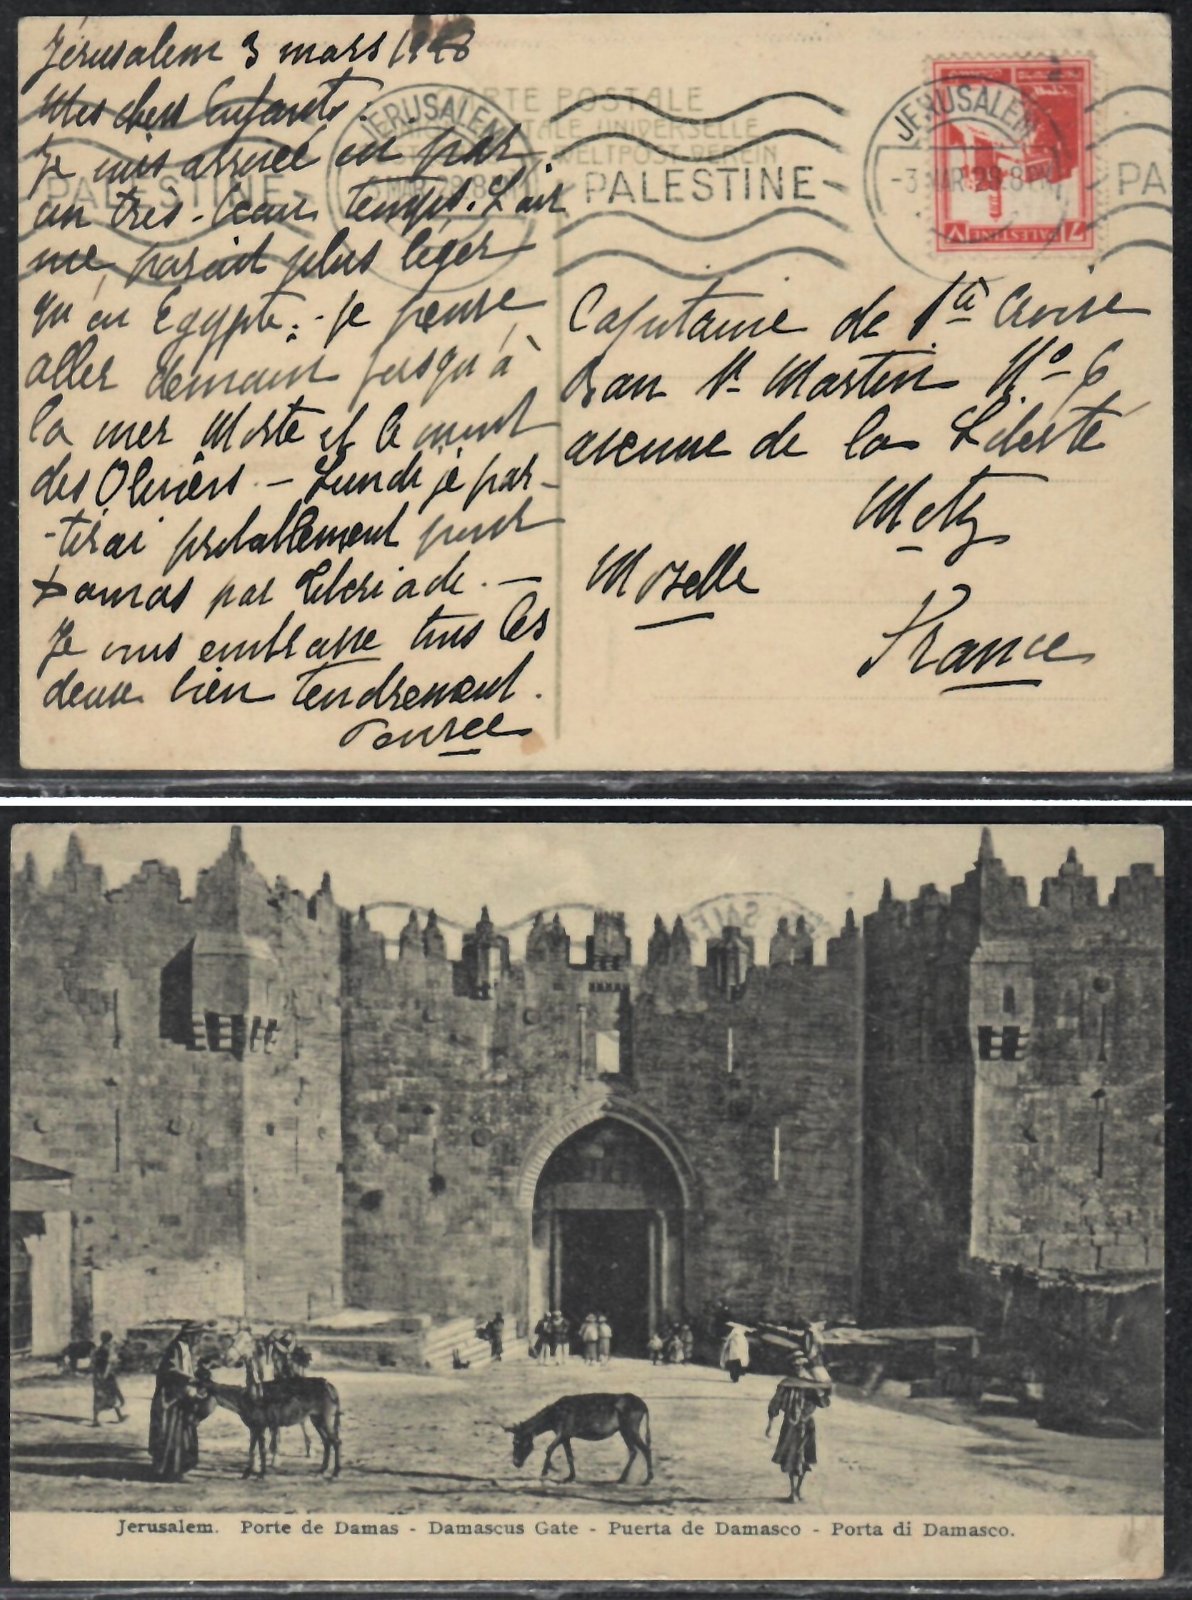 Jérusalem 3 mars 1928
Mes chers Enfants.
Je suis arrivée ici par
un très beau temps. L'air
me paraît plus léger
qu'en Egypte. - je pense
aller demain jusqu'à
la mer Morte et le mont
des Oliviers. - Lundi je par-
-tirai probablement pour
Damas par Tibériade. -
Je vous embrasse tous les
deux bien tendrement.
CARTE POSTALE
UNION POSTALE UNIVERSELLE
WELTPOST-VEREIN
JERUSALEM
PALESTINE
JERUSALEM
-3 MAR 28. 8 PM
PALESTINE
PA
PALESTINE
7
Capitaine de Ste Croix
Ban St Martin No 6
avenue de la Liberté
Metz
Moselle
France
Jerusalem. Porte de Damas - Damascus Gate - Puerta de Damasco - Porta di Damasco.